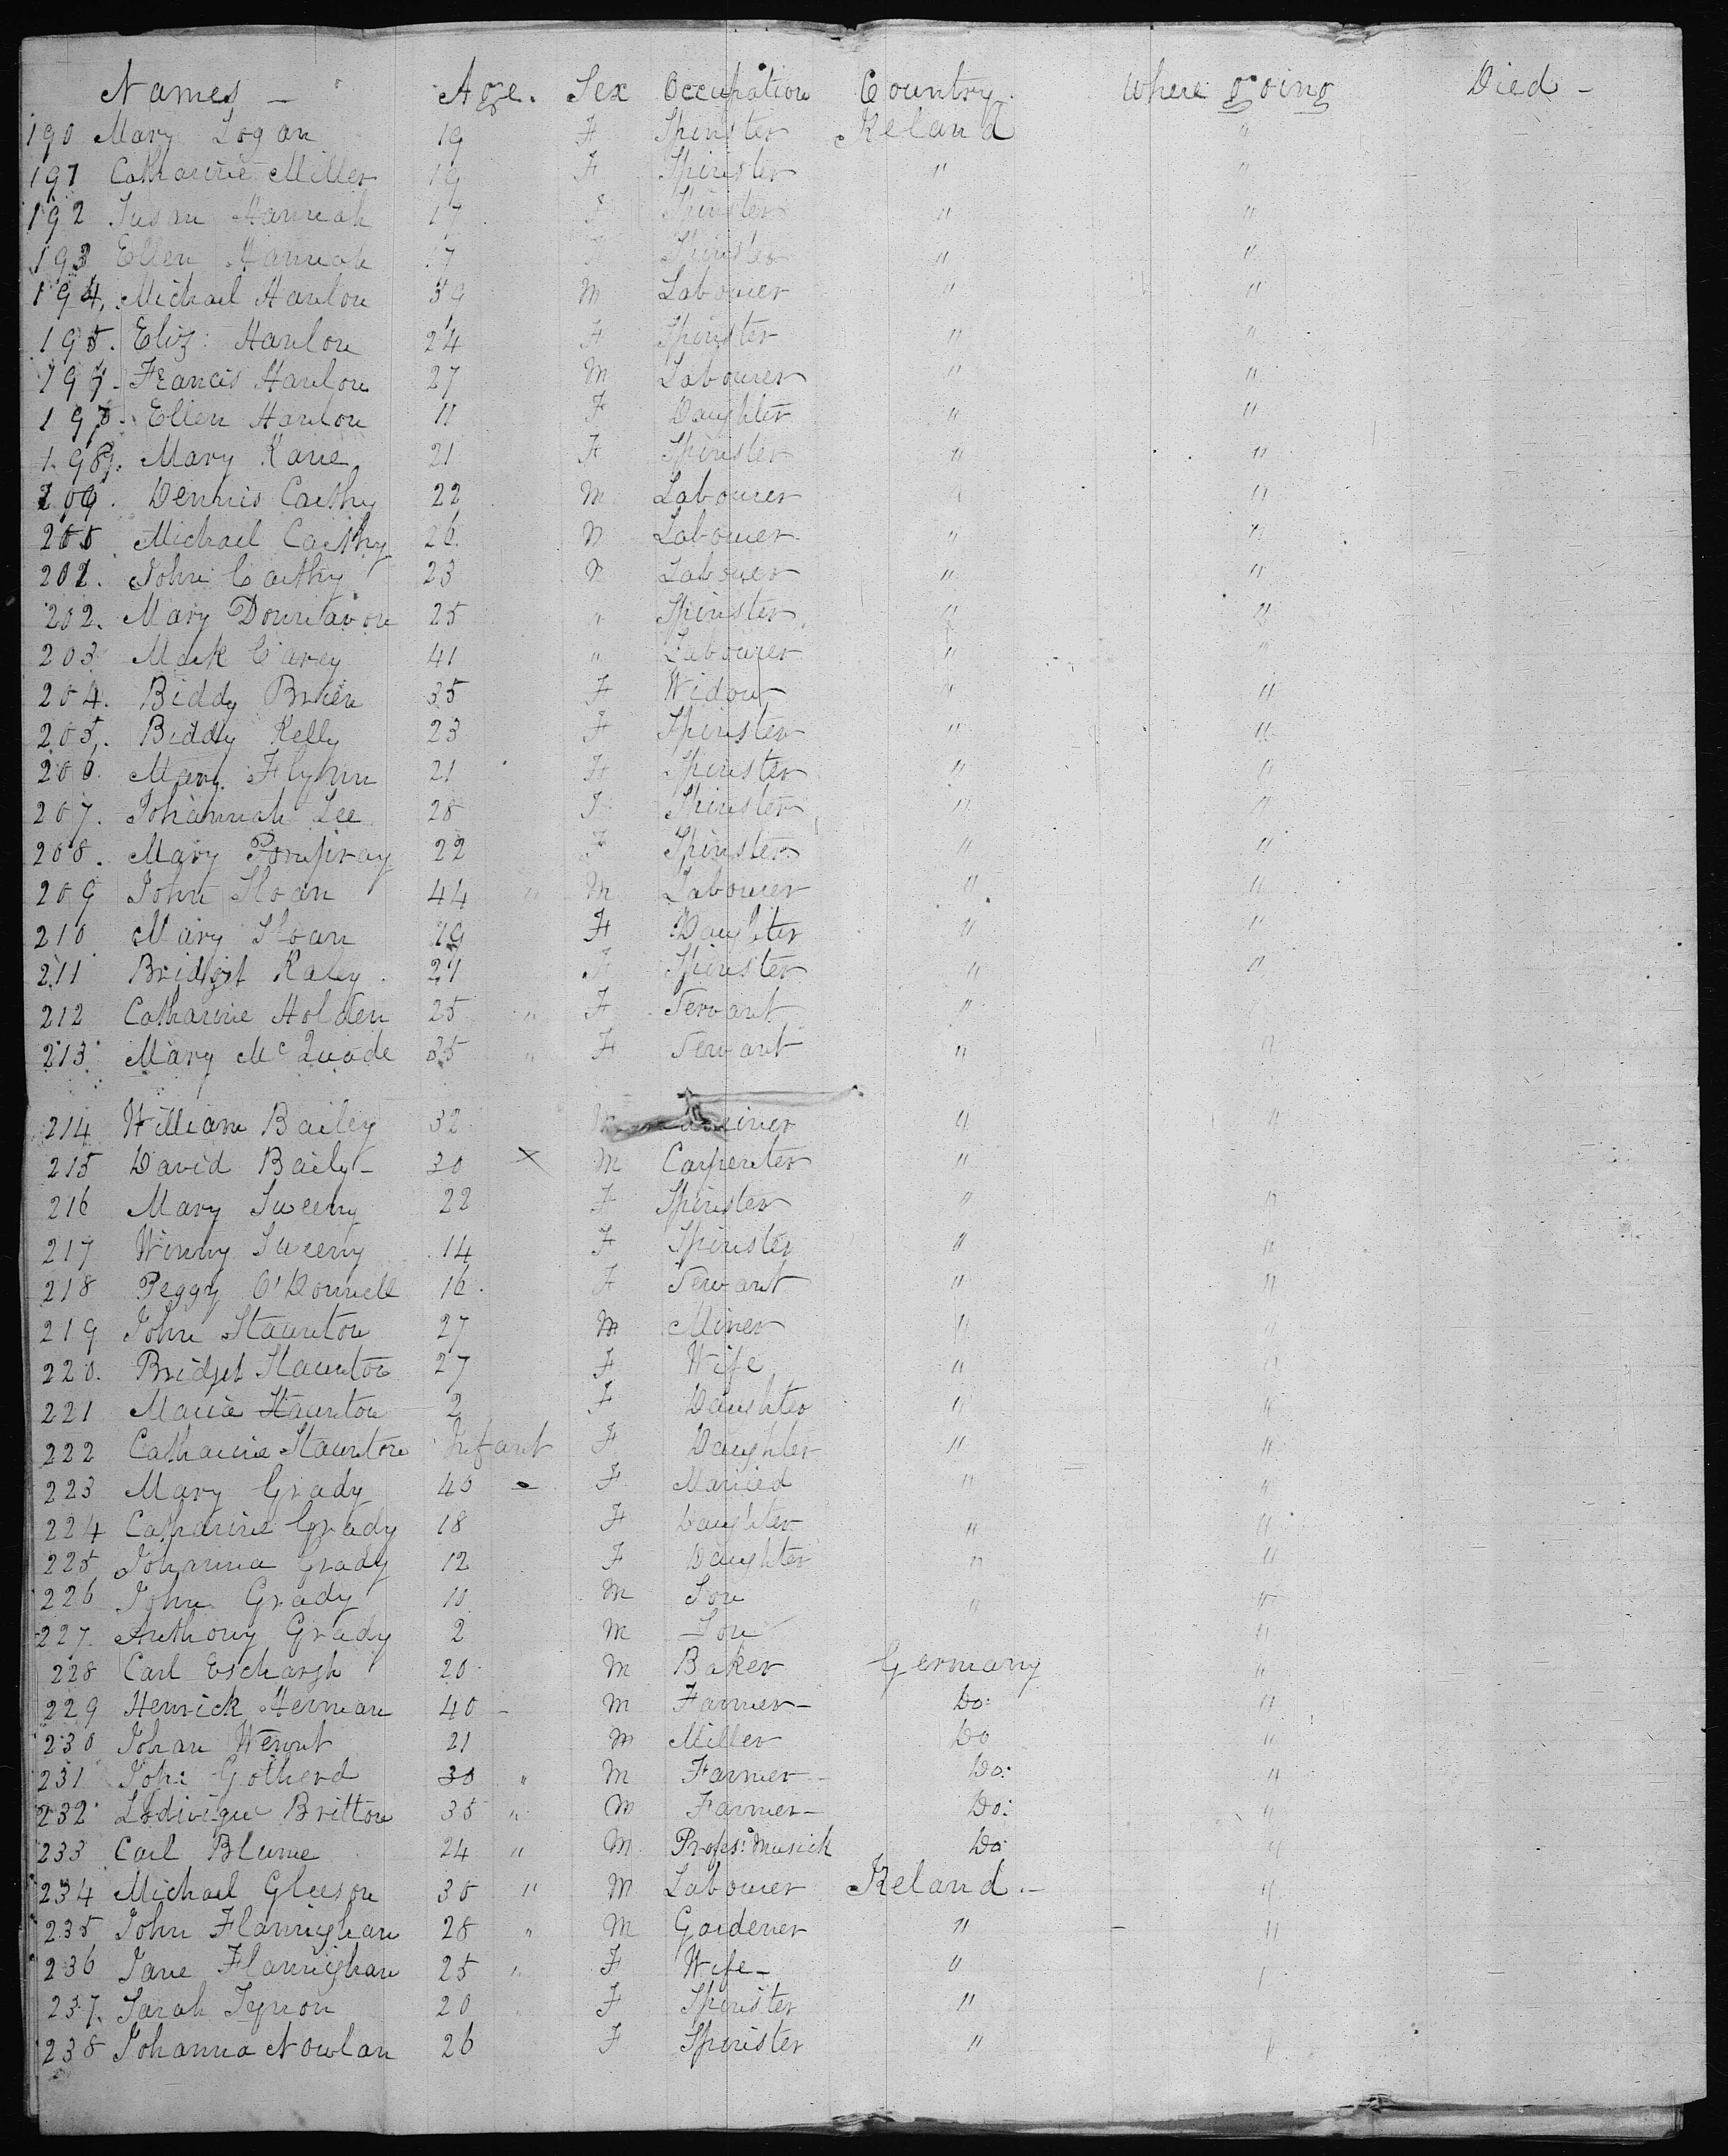 Names — Age. Sex Occupation Country. Where going Died –
190 Mary Logan 19 F Spinster Ireland "
191 Catharine Miller 19 F Spinster " "
192 Susan Hannah 17 F Spinster " "
193 Ellen Hannah 17 F Spinster " "
194. Michael Hanlon 39 M Labourer " "
195. Eliz: Hanlon 24 F Spinster " "
Francis Hanlon 27 M Labourer " "
Ellen Hanlon 11 F Daughter " "
Mary Kane 21 F Spinster " "
Dennis Carthy 22 M Labourer " "
Michael Carthy 26 M Labourer " "
201. John Carthy 23 M Labourer " "
202. Mary Donnavon 25 " Spinster " "
203 Mark Carey 41 " Labourer " "
204. Biddy Brien 35 F Widow " "
205. Biddy Kelly 23 F Spinster " "
206. Mary Flynn 21 F Spinster " "
207. Johannah Lee 28 F Spinster " "
208. Mary Pomfray 22 F Spinster " "
209 John Sloan 44 " M Labourer " "
210 Mary Sloan 19 F Daughter " "
211 Bridget Kaley 27 F Spinster " "
212 Catharine Holden 25 " F Servant "
213 Mary Mc Quade 35 " F Servant " "
214 William Bailey 32 M " "
215 David Baily – 30 × M Carpenter "
216 Mary Sweeny 22 F Spinster " "
217 Winny Sweeny 14 F Spinster " "
218 Peggy O'Donnell 16. F Servant " "
219 John Staunton 27 M Miner " "
220. Bridget Staunton 27 F Wife " "
221 Maria Staunton 2 F Daughter " "
222 Catharine Staunton Infant F Daughter " "
223 Mary Grady 40 – F Maried " "
224 Catharine Grady 18 F Daughter " "
225 Johanna Grady 12 F Daughter " "
226 John Grady 10 M Son " "
227. Anthony Grady 2 M Son "
228 Carl Escharsh 20 M Baker Germany "
229 Henrick Herman 40 – M Farmer – Do: "
230 Johan Wenut 21 M Miller Do "
231 Joh: Gotherd 30 " M Farmer – Do: "
232 Lodivique Britton 35 " M Farmer – Do: "
233 Carl Blume 24 " M Profes: Musick Do "
234 Michael Gleeson 35 " M Labourer Ireland. – "
235 John Flannighan 28 " M Gardener " – "
236 Jane Flannighan 25 " F Wife – " "
237. Sarah Tynon 20 F Spinster "
238 Johanna Nowlan 26 F Spinster " "